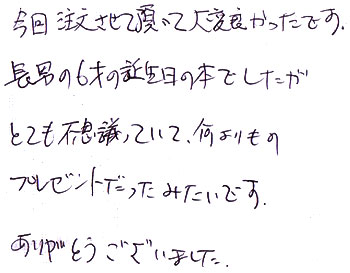 今回注文させて頂いて大変良かったです.
長男の6才の誕生日の本でしたが
とても不思議っていて、何よりもの
プレゼントだったみたいです.
ありがとうございました.